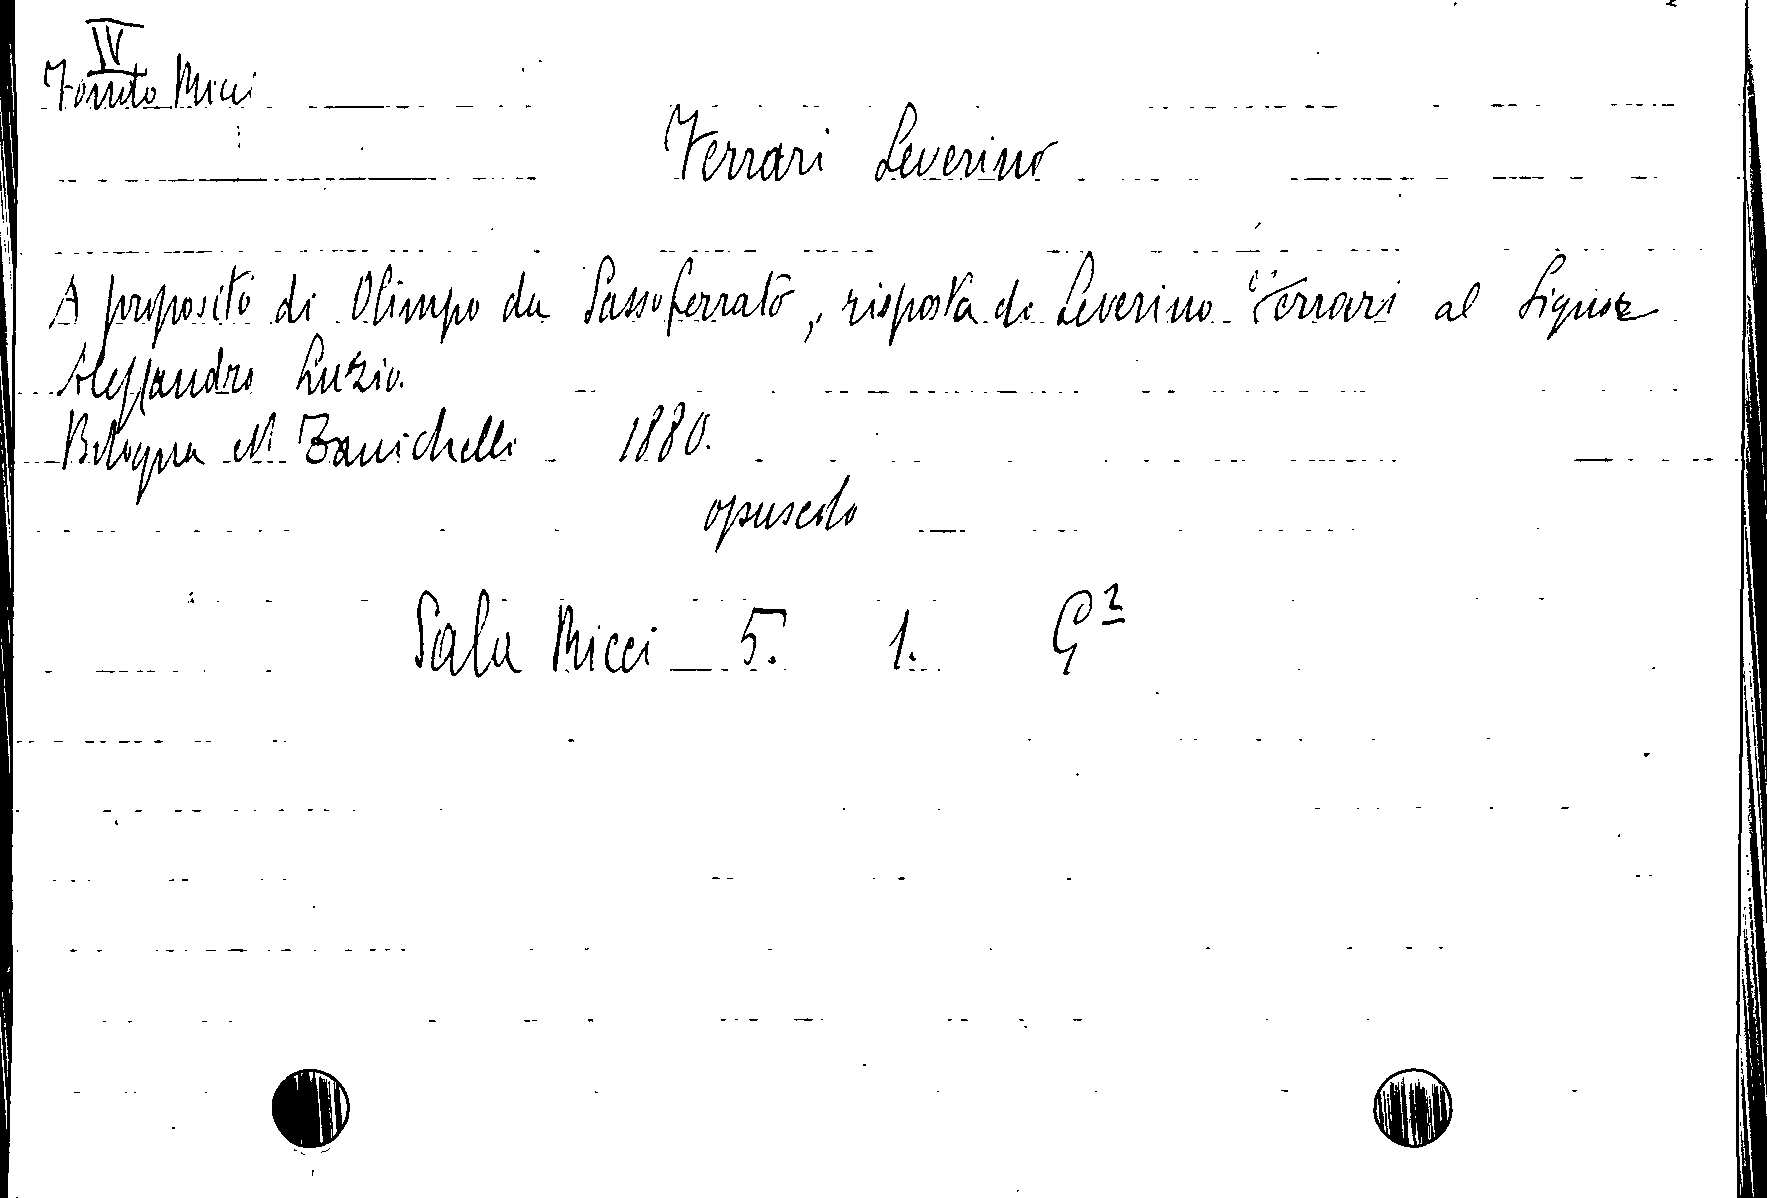 IV
Fondo Ricci
Ferrari Severino
A proposito di Olimpo da Sassoferrato, risposta di Severino Ferrari al Signor
Alessandro Luzio.
Bologna N. Zanichelli 1880.
opuscolo
Sala Ricci 5. 1. G²